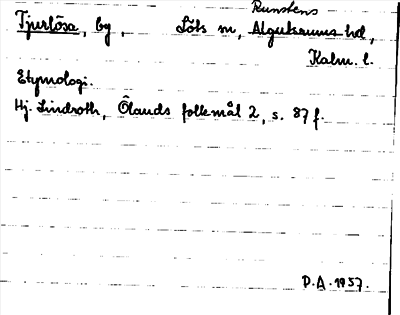 Runstens
Tjurlösa, by, Löts sn, Algutsrums hd,
Kalm. l.
Etymologi.
Hj. Lindroth, Ölands folkmål 2, s. 87 f.
P.A. 1957.